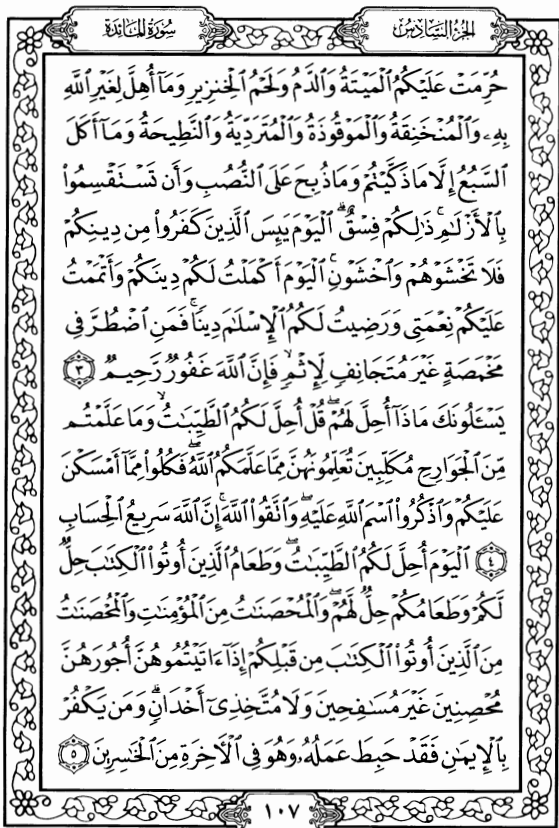 الجزء السادس
سورة المائدة
حُرِّمَتْ عَلَيْكُمُ ٱلْمَيْتَةُ وَٱلدَّمُ وَلَحْمُ ٱلْخِنزِيرِ وَمَآ أُهِلَّ لِغَيْرِ ٱللَّهِ
بِهِۦ وَٱلْمُنْخَنِقَةُ وَٱلْمَوْقُوذَةُ وَٱلْمُتَرَدِّيَةُ وَٱلنَّطِيحَةُ وَمَآ أَكَلَ
ٱلسَّبُعُ إِلَّا مَا ذَكَّيْتُمْ وَمَا ذُبِحَ عَلَى ٱلنُّصُبِ وَأَن تَسْتَقْسِمُوا۟
بِٱلْأَزْلَـٰمِ ۚ ذَٰلِكُمْ فِسْقٌ ۗ ٱلْيَوْمَ يَئِسَ ٱلَّذِينَ كَفَرُوا۟ مِن دِينِكُمْ
فَلَا تَخْشَوْهُمْ وَٱخْشَوْنِ ۚ ٱلْيَوْمَ أَكْمَلْتُ لَكُمْ دِينَكُمْ وَأَتْمَمْتُ
عَلَيْكُمْ نِعْمَتِى وَرَضِيتُ لَكُمُ ٱلْإِسْلَـٰمَ دِينًا ۚ فَمَنِ ٱضْطُرَّ فِى
مَخْمَصَةٍ غَيْرَ مُتَجَانِفٍ لِّإِثْمٍ ۙ فَإِنَّ ٱللَّهَ غَفُورٌ رَّحِيمٌ ٣
يَسْـَٔلُونَكَ مَاذَآ أُحِلَّ لَهُمْ ۖ قُلْ أُحِلَّ لَكُمُ ٱلطَّيِّبَـٰتُ ۙ وَمَا عَلَّمْتُم
مِّنَ ٱلْجَوَارِحِ مُكَلِّبِينَ تُعَلِّمُونَهُنَّ مِمَّا عَلَّمَكُمُ ٱللَّهُ ۖ فَكُلُوا۟ مِمَّآ أَمْسَكْنَ
عَلَيْكُمْ وَٱذْكُرُوا۟ ٱسْمَ ٱللَّهِ عَلَيْهِ ۖ وَٱتَّقُوا۟ ٱللَّهَ ۚ إِنَّ ٱللَّهَ سَرِيعُ ٱلْحِسَابِ
٤ ٱلْيَوْمَ أُحِلَّ لَكُمُ ٱلطَّيِّبَـٰتُ ۖ وَطَعَامُ ٱلَّذِينَ أُوتُوا۟ ٱلْكِتَـٰبَ حِلٌّ
لَّكُمْ وَطَعَامُكُمْ حِلٌّ لَّهُمْ ۖ وَٱلْمُحْصَنَـٰتُ مِنَ ٱلْمُؤْمِنَـٰتِ وَٱلْمُحْصَنَـٰتُ
مِنَ ٱلَّذِينَ أُوتُوا۟ ٱلْكِتَـٰبَ مِن قَبْلِكُمْ إِذَآ ءَاتَيْتُمُوهُنَّ أُجُورَهُنَّ
مُحْصِنِينَ غَيْرَ مُسَـٰفِحِينَ وَلَا مُتَّخِذِىٓ أَخْدَانٍ ۗ وَمَن يَكْفُرْ
بِٱلْإِيمَـٰنِ فَقَدْ حَبِطَ عَمَلُهُۥ وَهُوَ فِى ٱلْـَٔاخِرَةِ مِنَ ٱلْخَـٰسِرِينَ ٥
١٠٧